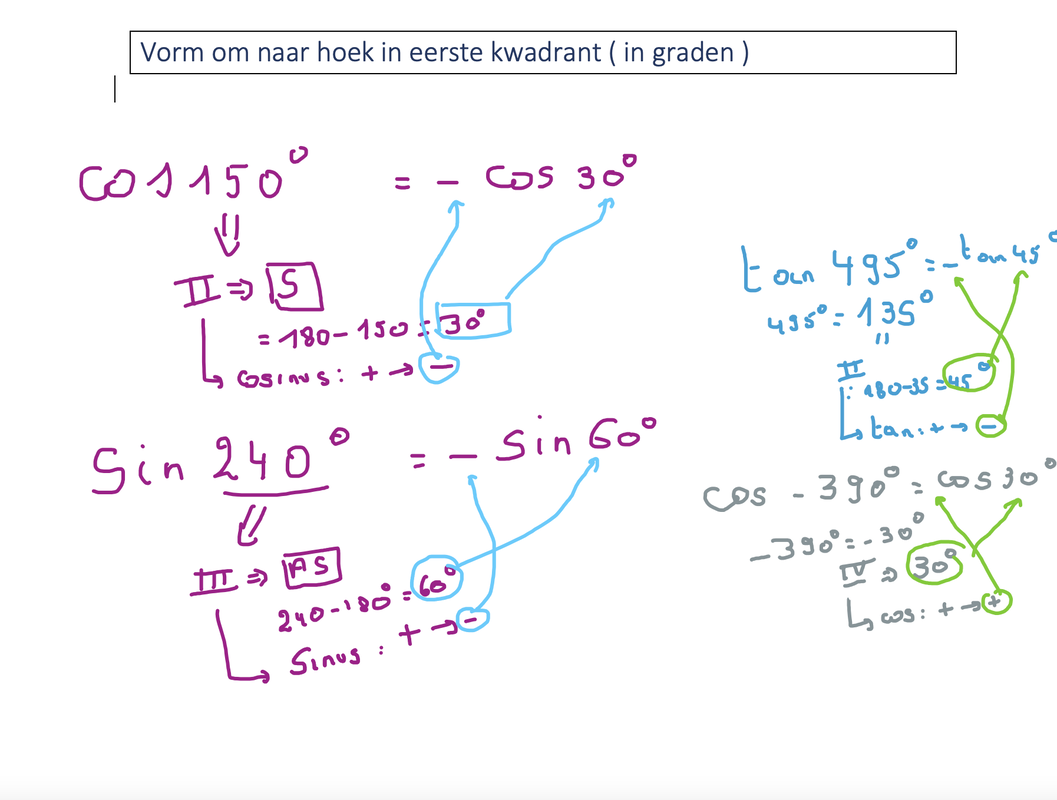 Vorm om naar hoek in eerste kwadrant ( in graden )
cos 150° = - cos 30°
II ⇒ S
= 180 - 150 = 30°
cosinus : + → -
sin 240° = - sin 60°
III ⇒ AS
240 - 180° = 60°
Sinus : + → -
tan 495° = - tan 45°
495° = 135°
II
: 180-35 = 45°
tan : + → -
cos - 390° = cos 30°
-390° = -30°
IV ⇒ 30°
cos : + → +